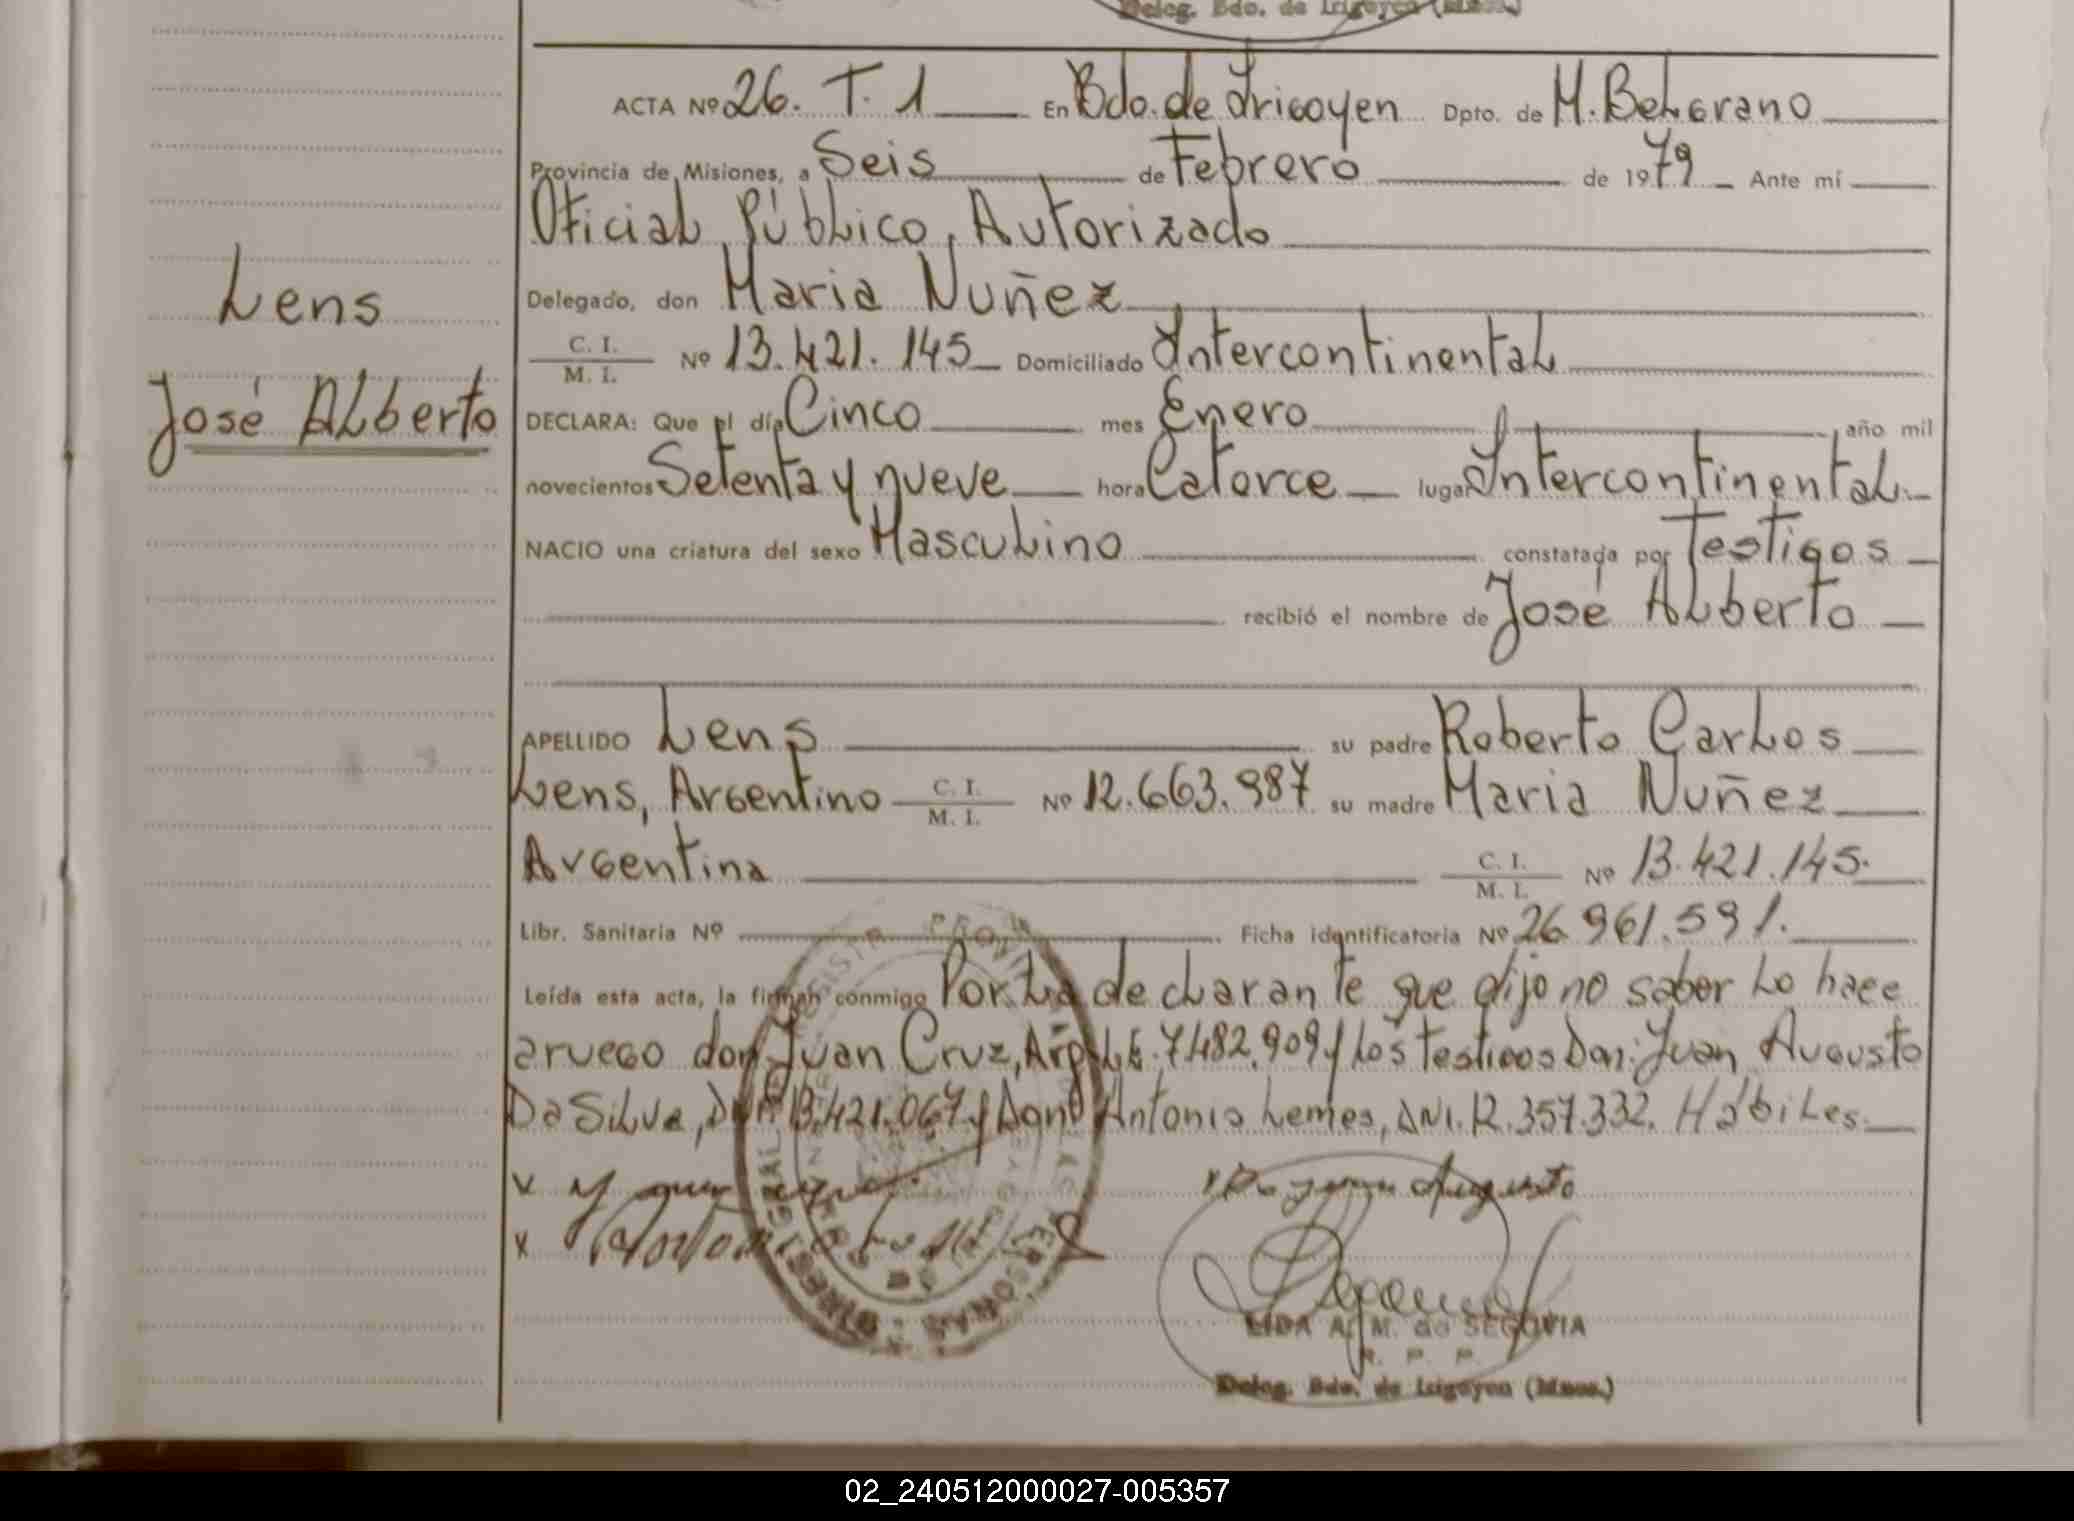 Deleg. Bdo. de Irigoyen (Mnes.)
ACTA Nº 26. T. 1 En Bdo. de Irigoyen Dpto. de M. Belgrano
Provincia de Misiones, a Seis de Febrero de 1979 Ante mí
Oficial Público, Autorizado
Lens
Delegado, don Maria Nuñez
C. I. / M. I. Nº 13.421.145 Domiciliado Intercontinental
José Alberto
DECLARA: Que el día Cinco mes Enero año mil
novecientos Setenta y nueve hora Catorce lugar Intercontinental.
NACIO una criatura del sexo Masculino constatada por Testigos
recibió el nombre de José Alberto
APELLIDO Lens su padre Roberto Carlos
Lens, Argentino C. I. / M. I. Nº 12.663.987 su madre Maria Nuñez
Argentina C. I. / M. I. Nº 13.421.145.
Libr. Sanitaria Nº Ficha identificatoria Nº 26.961.591.
Leída esta acta, la firman conmigo Por la declarante que dijo no saber lo hace
aruego don Juan Cruz, Arg. L.E. 7.482.909 y los testigos Don: Juan Augusto
Da Silva, DNI 13.421.067 y Don Antonio Lemes, DNI. 12.357.332. Hábiles.
x
x Antonio
Augusto
LIDA A. M. de SEGOVIA
R. P. P.
Deleg. Bdo. de Irigoyen (Mnes.)
02_240512000027-005357